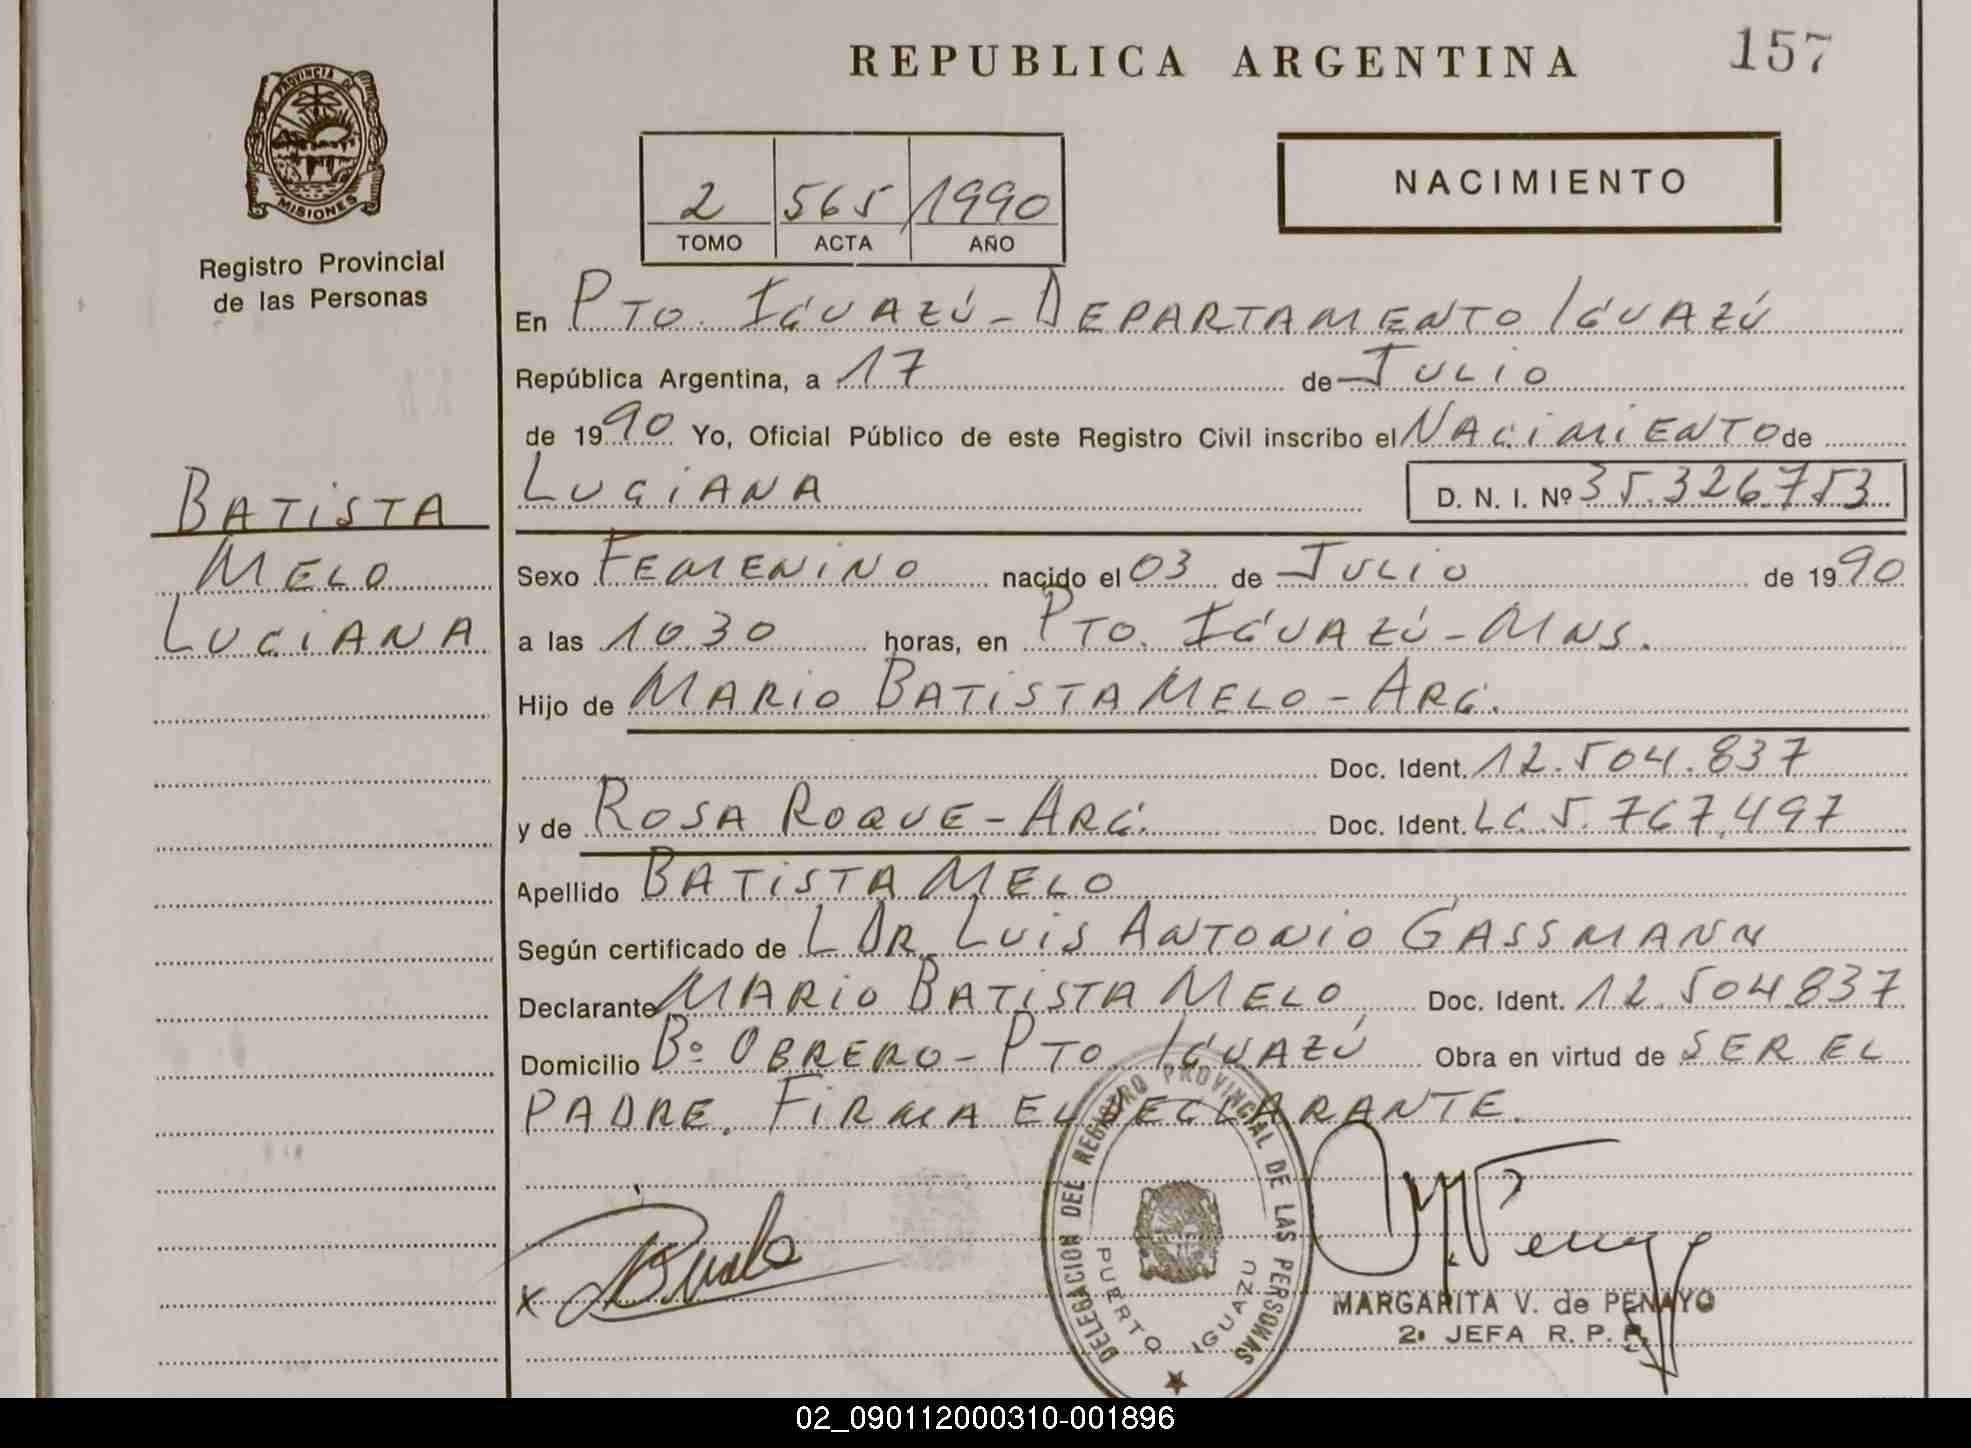 REPUBLICA ARGENTINA
157
PROVINCIA DE
MISIONES
Registro Provincial
de las Personas
2 565 1990
TOMO ACTA AÑO
NACIMIENTO
En PTO. IGUAZÚ - DEPARTAMENTO IGUAZÚ
República Argentina, a 17 de JULIO
de 1990 Yo, Oficial Público de este Registro Civil inscribo el NACIMIENTO de
BATISTA
MELO
LUCIANA
LUCIANA D. N. I. Nº 35.326.753
Sexo FEMENINO nacido el 03 de JULIO de 1990
a las 1030 horas, en PTO. IGUAZÚ - MNS.
Hijo de MARIO BATISTA MELO - ARG.
Doc. Ident. 12.504.837
y de ROSA ROQUE - ARG. Doc. Ident. LC. 5.767.497
Apellido BATISTA MELO
Según certificado de L DR. LUIS ANTONIO GASSMANN
Declarante MARIO BATISTA MELO Doc. Ident. 12.504.837
Domicilio Bº OBRERO - PTO. IGUAZÚ Obra en virtud de SER EL
PADRE. FIRMA EL DECLARANTE.
DELEGACION DEL REGISTRO PROVINCIAL DE LAS PERSONAS
PUERTO IGUAZU
X
MARGARITA V. de PENAYO
2ª JEFA R. P. P.
02_090112000310-001896